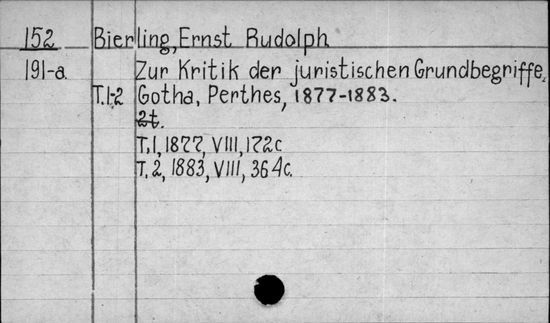 152 Bierling, Ernst Rudolph
191-a. Zur Kritik der juristischen Grundbegriffe.
T.1-2 Gotha, Perthes, 1877-1883.
2t.
T.1, 1877, VIII, 172c
T.2, 1883, VIII, 364c.